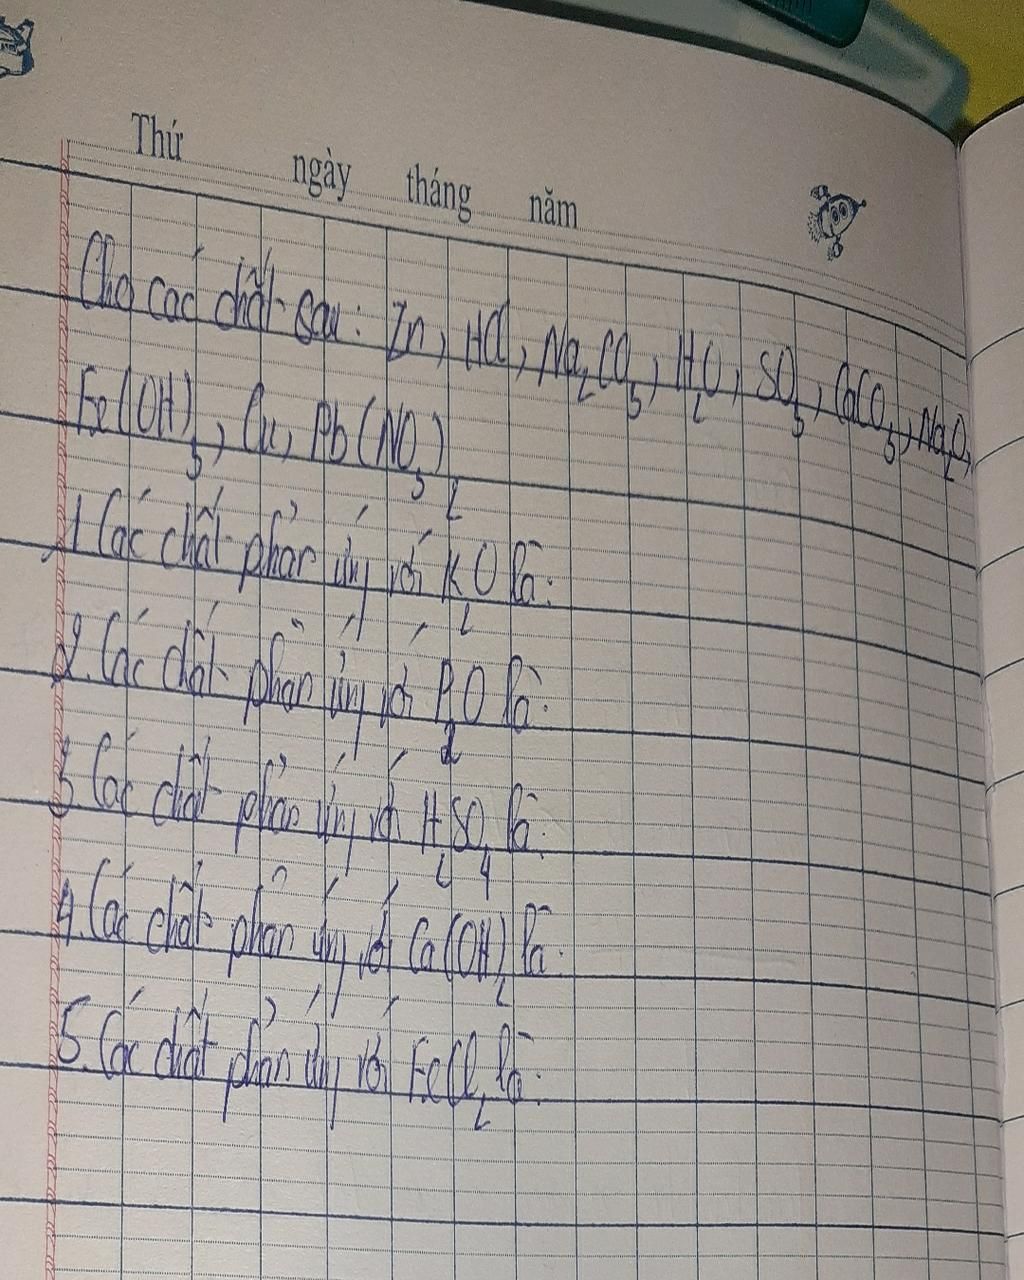 Thứ ngày tháng năm
Cho các chất sau: Zn, HCl, Na₂CO₃, H₂O, SO₃, CaCO₃, Na₂O,
Fe(OH)₃, Cu, Pb(NO₃)₂
1. Các chất phản ứng với K₂O là:
2. Các chất phản ứng với P₂O là:
3. Các chất phản ứng với H₂SO₄ là:
4. Các chất phản ứng với Ca(OH)₂ là:
5. Các chất phản ứng với FeCl₂ là: